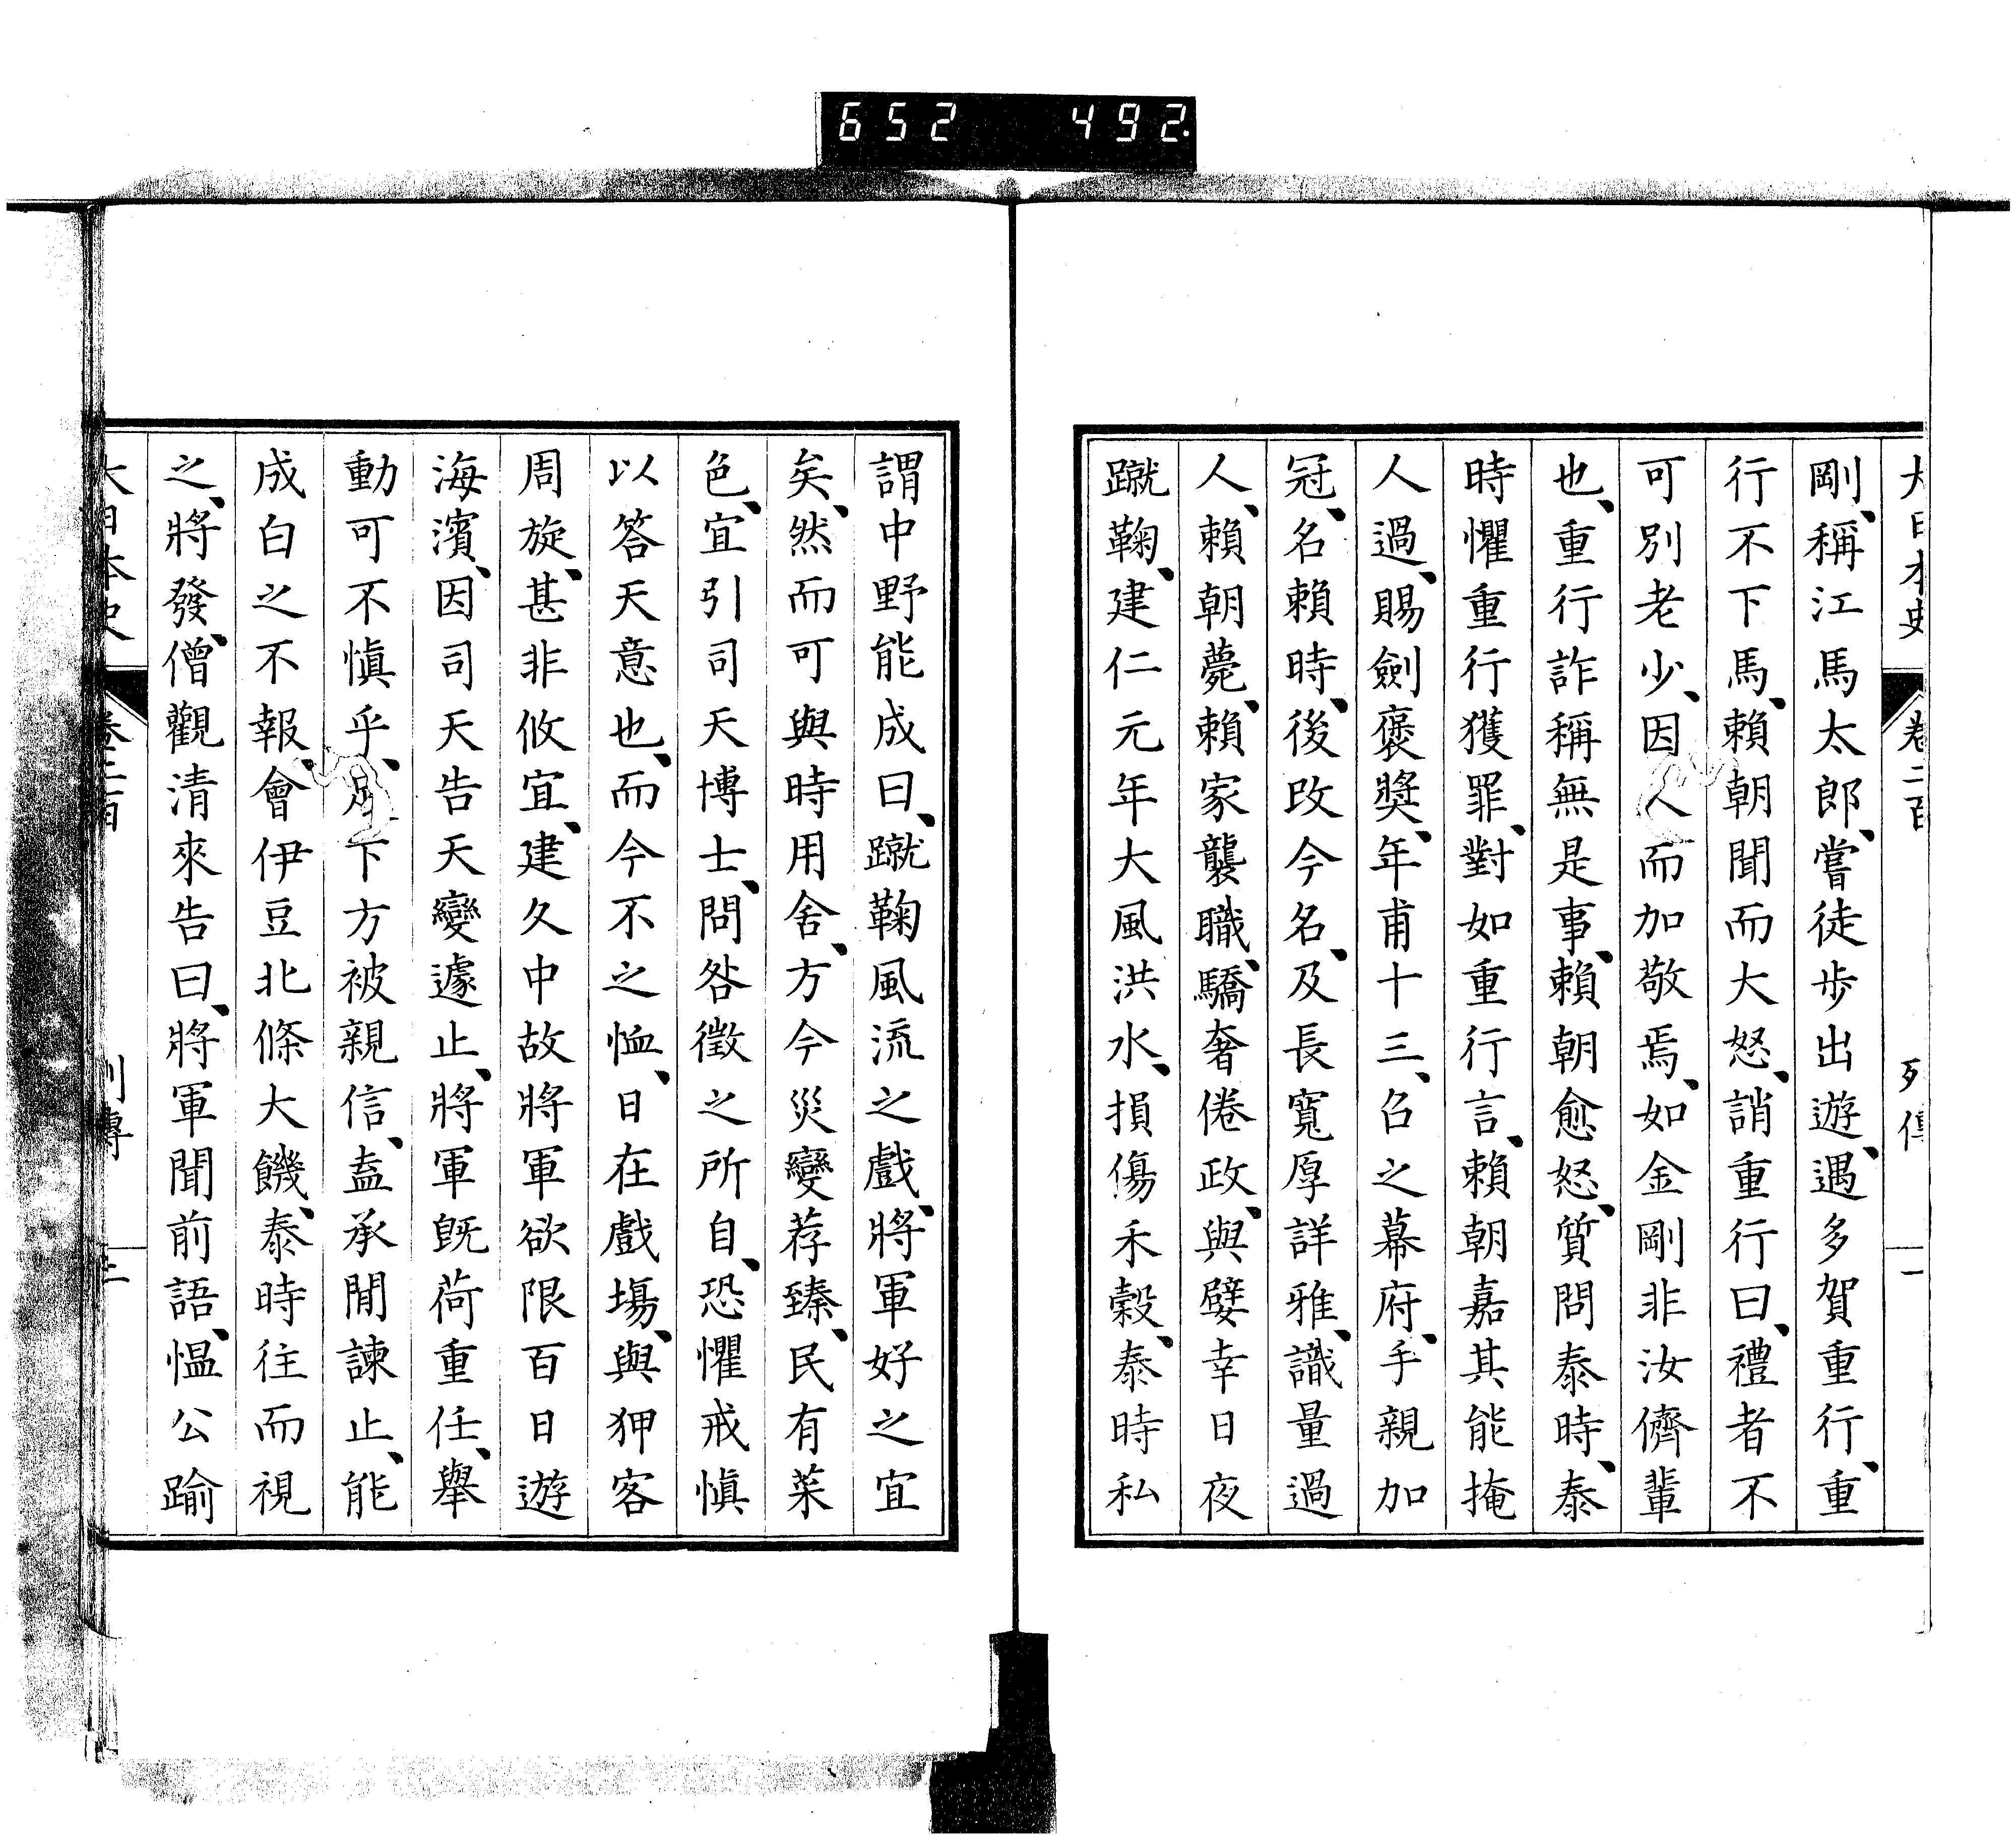 652 492.
大日本史 卷二百 列傳 一
剛、稱江馬太郎、嘗徒步出遊、遇多賀重行、重
行不下馬、賴朝聞而大怒、誚重行曰、禮者不
可別老少、因人而加敬焉、如金剛非汝儕輩
也、重行詐稱無是事、賴朝愈怒、質問泰時、泰
時懼重行獲罪、對如重行言、賴朝嘉其能掩
人過、賜劍褒獎、年甫十三、召之幕府、手親加
冠、名賴時、後改今名、及長寬厚詳雅、識量過
人、賴朝薨、賴家襲職、驕奢倦政、與嬖幸日夜
蹴鞠、建仁元年大風洪水、損傷禾穀、泰時私
謂中野能成曰、蹴鞠風流之戲、將軍好之宜
矣、然而可與時用舍、方今災變荐臻、民有菜
色、宜引司天博士、問咎徵之所自、恐懼戒愼
以答天意也、而今不之恤、日在戲場、與狎客
周旋、甚非攸宜、建久中故將軍欲限百日遊
海濱、因司天告天變遽止、將軍旣荷重任、舉
動可不愼乎、足下方被親信、盍承閒諫止、能
成白之不報、會伊豆北條大饑、泰時往而視
之、將發、僧觀清來告曰、將軍聞前語、慍公踰
大日本史 卷二百 列傳